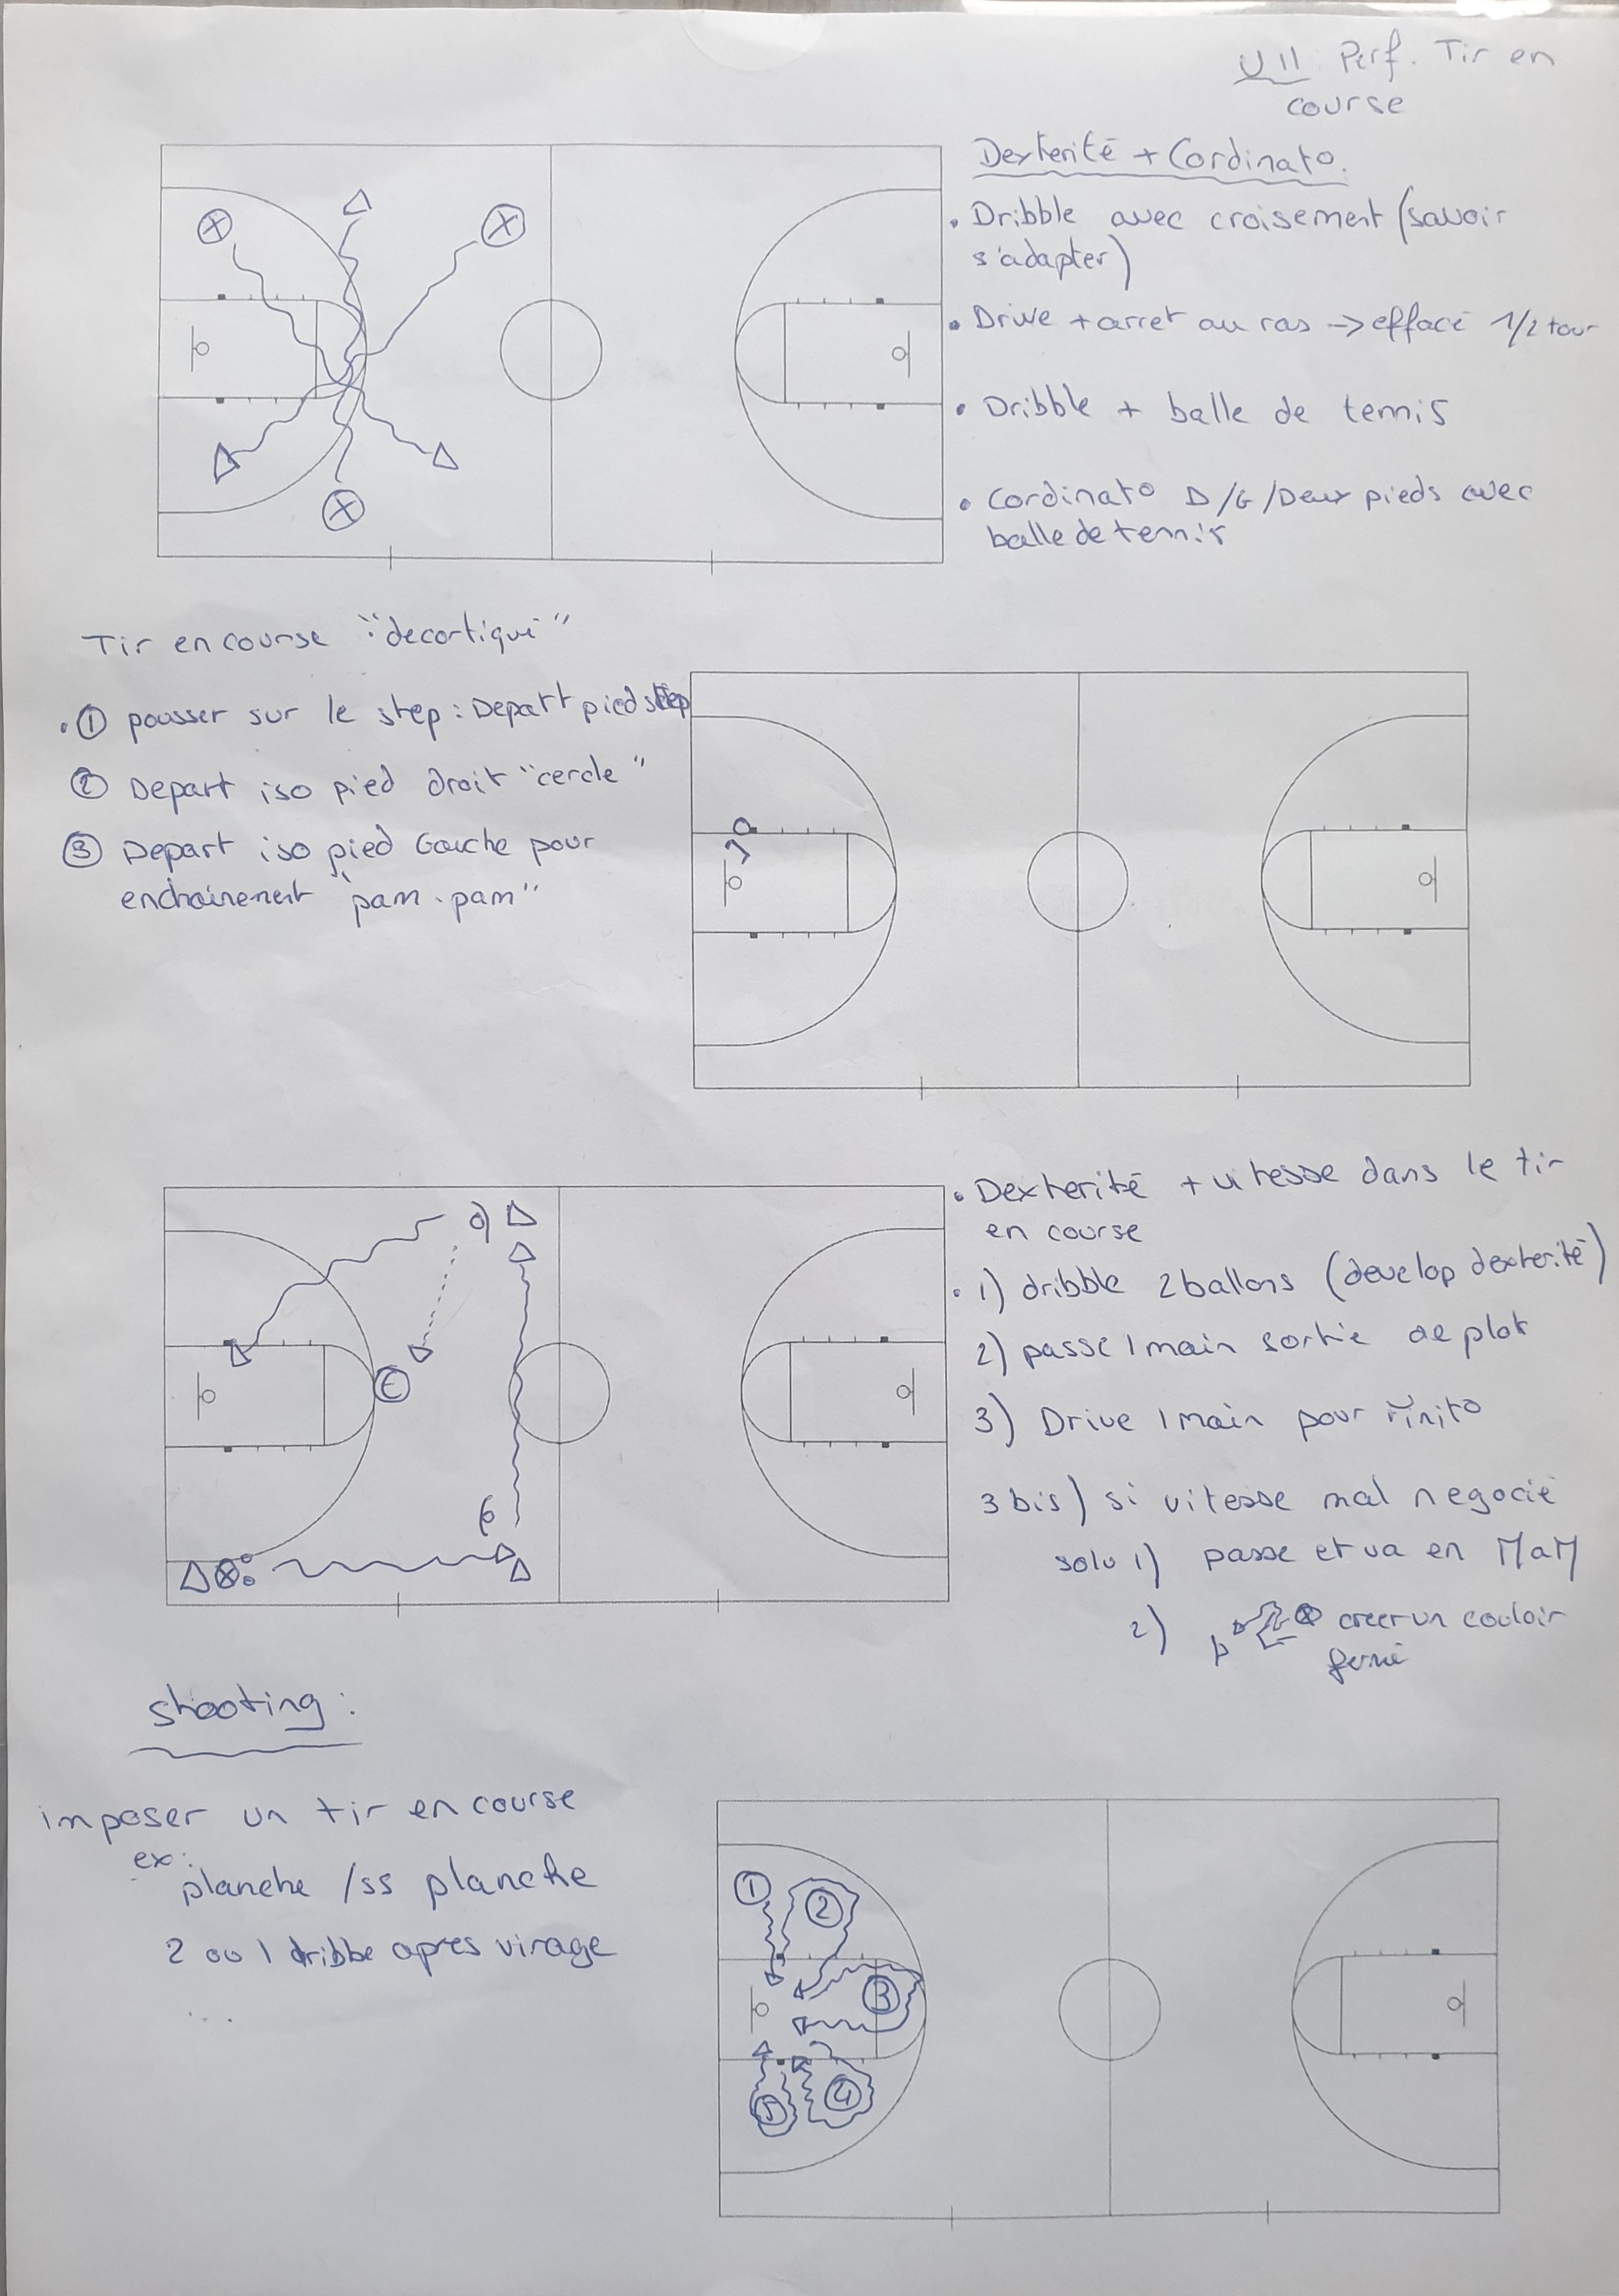 U11 Perf. Tir en
course
Dexterité + Cordinato.
• Dribble avec croisement (savoir
s'adapter)
• Drive + arret au ras -> effacé 1/2 tour
• Dribble + balle de tennis
• Cordinato D/G/Deux pieds avec
balle de tennis
Tir en course "decortiqué"
• ① pousser sur le step : Depart pied step
② Depart iso pied droit "cercle"
③ Depart iso pied Gauche pour
enchainement "pam . pam"
• Dexterité + vitesse dans le tir
en course
• 1) dribble 2 ballons (develop dexterité)
2) passe 1 main sortie de plot
3) Drive 1 main pour finito
3 bis) si vitesse mal negocié
solu 1) passe et va en MaM
2) creer un couloir
fermé
C
shooting :
imposer un tir en course
ex:
planche /ss planche
2 ou 1 dribbe apres virage
...
1
2
3
4
5